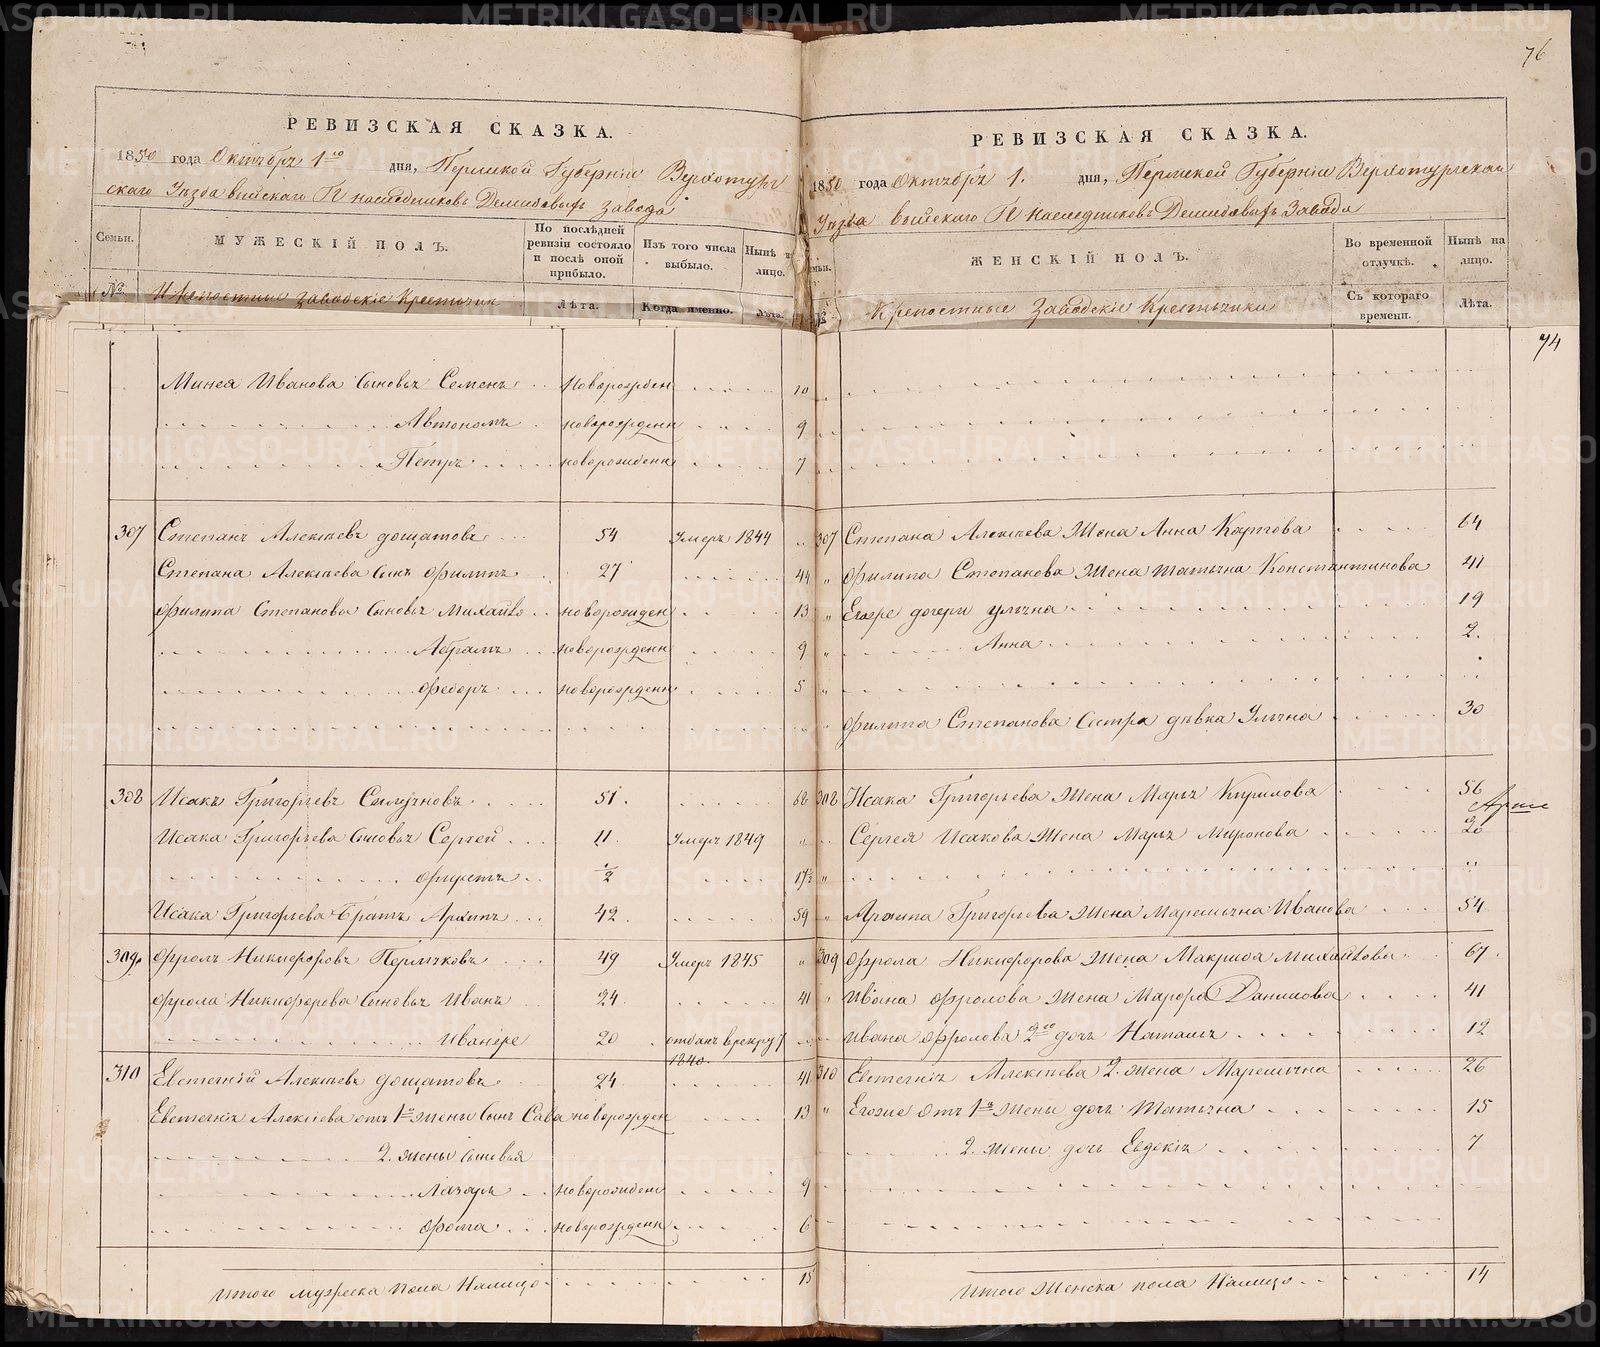 76
РЕВИЗСКАЯ СКАЗКА.
1850 года Октября 1го дня, Пермской Губернии Верхотурскаго Уезда Выйскаго Г. наследниковъ Демидовыхъ завода
Семьи. МУЖЕСКІЙ ПОЛЪ. По послѣдней ревизіи состояло и послѣ оной прибыло. Изъ того числа выбыло. Нынѣ на лицо.
№ Крепостные заводскіе Крестьяне Лѣта. Когда именно. Лѣта.
Минея Иванова Сыновья Семенъ Новорожден 10
Автономъ новорожденн 9
Петръ новорожденн 7
307 Степанъ Алексѣевъ Дощатовъ 54 Умеръ 1844
Степана Алексѣева Сынъ Филипъ 27 44
Филипа Степанова Сыновья Михайло новорожден 13
Абрамъ новорожденн 9
Федоръ новорожденн 5
308 Исакъ Григорьевъ 51.
Исака Григорьева Сыновья Сергей 11. Умеръ 1849
½ 17½
Исака Григорьева Братъ Архипъ 42. 59
309 Фролъ Никифоровъ Пермяковъ 49 Умеръ 1845
Фрола Никифорова Сыновья Иванъ 24. 41
Иванъ же 20 отданъ в рекруты 1840.
310 Евстегній Алексѣевъ Дощатовъ 24. 41
Евстегнія Алексѣева отъ 1й жены Сынъ Сава новорожден 13
2. жены сыновья
Лазарь Новорожден 9
Фома новорожденн 6
Итого мужеска пола Налицо 15
РЕВИЗСКАЯ СКАЗКА.
1850 года Октября 1. дня, Пермской Губерніи Верхотурскаго
Уезда Выйскаго Г. наследниковъ Демидовыхъ Завода
Семьи. ЖЕНСКІЙ ПОЛЪ. Во временной отлучкѣ. Нынѣ на лицо.
№ Крепостные Заводскіе Крестьянки Съ котораго времени. Лѣта.
74
307 Степана Алексѣева Жена Анна Карпова 64
Филипа Степанова Жена Татьяна Константинова 41
Егоже дочери Ульяна 19
Анна 2.
Филипа Степанова Сестра девка Ульяна 30
308 Исака Григорьева Жена Марья Кирилова 56
Сергея Исакова Жена Марья Миронова 20
Архипа Григорьева Жена Маремьяна Иванова 54
309 Фрола Никифорова Жена Макрида Михайлова 67.
Ивана Фролова Жена Марфа Данилова 41
Ивана Фролова 2го дочь Наталья 12
310 Евстегнія Алексѣева 2. жена Маремьяна 26
Егоже Отъ 1й жены дочь Татьяна 15
2. жены дочь Евдокія 7
Итого Женска пола Налицо 14
METRIKI.GASO-URAL.RU